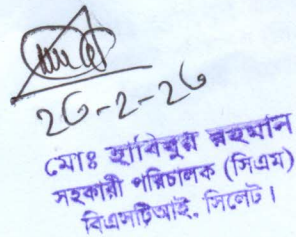 ২৩-২-২৬
মোঃ হাবিবুর রহমান
সহকারী পরিচালক (সিএম)
বিএসটিআই, সিলেট।